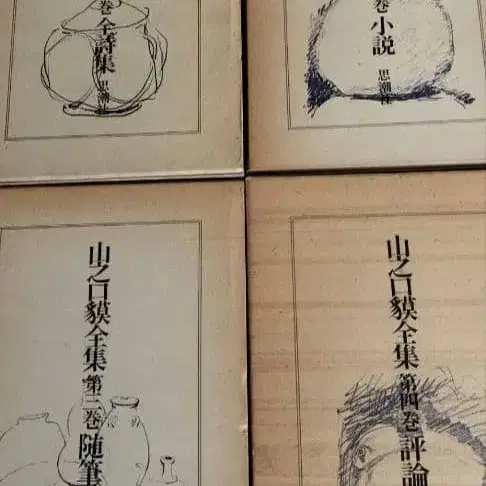 巻 全詩集 思潮社
巻 小説 思潮社
山之口貘全集 第三巻 随筆
山之口貘全集 第四巻 評論